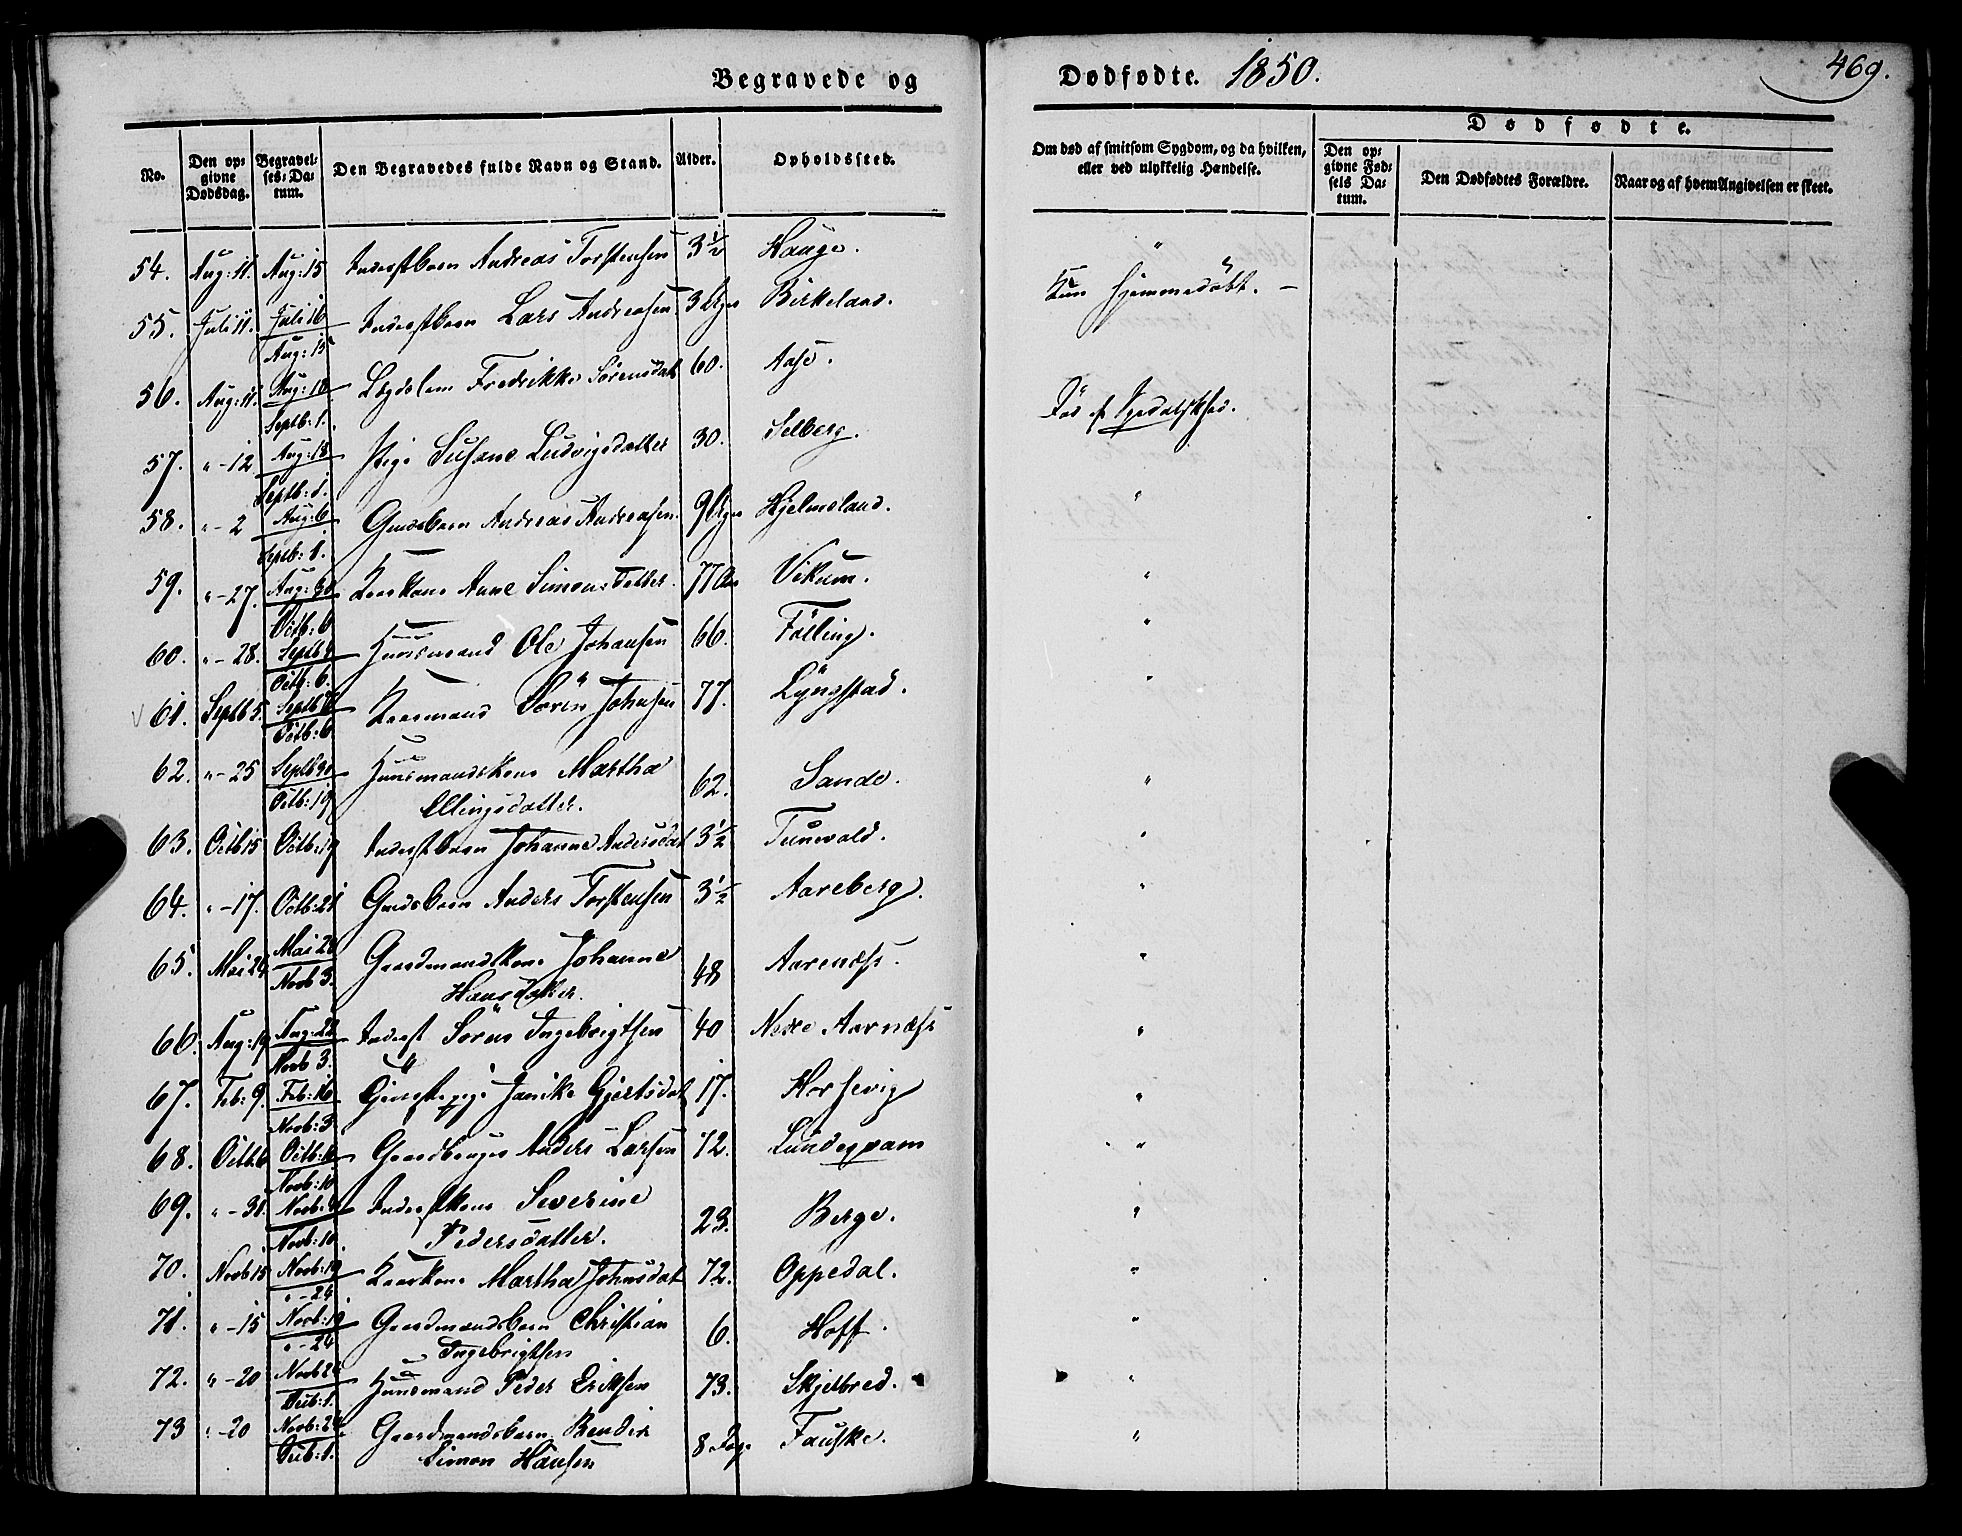 Begravede og
Dødfødte. 1850.
469.
No.
Den opgivne Dødsdag.
Begravelses-Datum.
Den Begravedes fulde Navn og Stand.
Alder.
Opholdssted.
Om død af smitsom Sygdom, og da hvilken, eller ved ulykkelig Hændelse.
Dødfødte.
Den opgivne Fødsels Datum.
Den Dødfødtes Forældre.
Naar og af hvem Angivelsen er skeet.
54. Aug: 11. Aug: 15 Inderstbarn Andreas Torstensen 3½ Hauge. "
55. Juli 11. Juli 16 Aug: 15 Inderstbarn Lars Andreasen 3 Birkeland. Kun hjemmedøbt. —
56. Aug: 11. Aug: 18 Septb: 1. Lægdslem Fredrikke Sörensdat 60. Aase.
57. " - 12 Aug: 18 Septb: 1. Pige Susane Ludvigsdatter 30. Selberg. Död af Spedalskhed.
58. " - 2 Aug: 6 Septb: 1. Andreas Andreasen. 9 Hjelmeland. "
59. " - 27. Aug: 30 Octb: 6 Kaarkone Anne Simonsdatter. 77 Vikum. "
60. " - 28. Septb Octb: 6. Huusmand Ole Johansen 66. Fölling. "
61. Septb 5. Septb Octb: 6 Kaarmand Sören Johnsen 77. Lyngstad. "
62. " - 25 Septb 30 Octb: 19 Huusmandskone Martha
Ellingsdatter. 62. Sande. "
63. Octb 15 Octb: 19 Inderstbarn Johanne Andersdat 3½ Tunvald. "
64. " - 17. Octb: 21 Anders Torstensen 3½ Aareberg. "
65. Mai 24 Mai 28 Novb 3. Gaardmandskone Johanne
Hansdatter. 48 Aarenæs. "
66. Aug: 19 Aug: 22 Novb 3. Inderst Sören Ingebrigtsen 40 Nedre Aarnæs "
67. Feb: 9. Feb: 16 Novb: 3 Janike Gjertsdat 17. Horsevig "
68. Octb 6 Octb: Novb: 10 Gaardbruger Anders Larsen 72. "
69. " - 31. Novb: Novb: 10. Inderstkone Severine
Pedersdatter. 23. Berge. "
70. Novb 15 Novb: 19 " - 24 Kaarkone Martha Johnsdat 72. Oppedal. "
71. " - 15 Novb: 19 " - 24 Gaardmandsbarn Christian
Ingebrigtsen 6. Hoff. "
72. " - 20 Novb 24 Decb: 1. Huusmand Peder Eriksen 73. Skjelbred. "
73 " - 20 Novb: 24. Decb: 1. Gaardmandsbarn
Simon Hansen 8 Dage Fauske. "